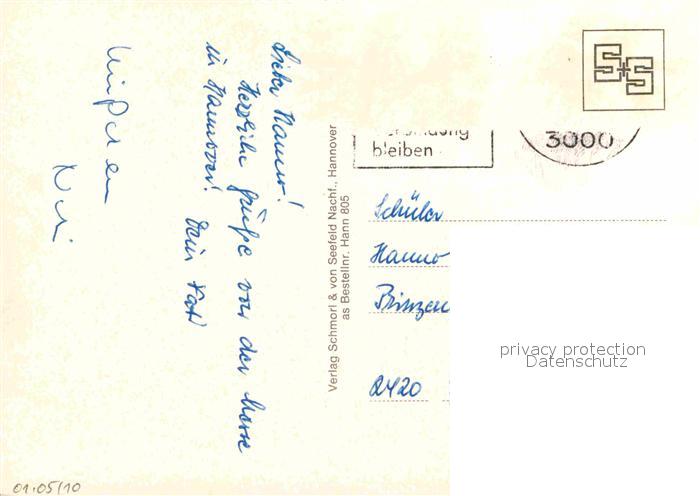 Lieber Hanno!
Herzliche Grüße von der Messe
in Hannover! Dein Vati
Verlag Schmorl & von Seefeld Nachf., Hannover
as Bestellnr. Hann 805
S+S
bleiben
3000
Schüler
Hanno
Prinzen
2420
privacy protection
Datenschutz
01.05/10